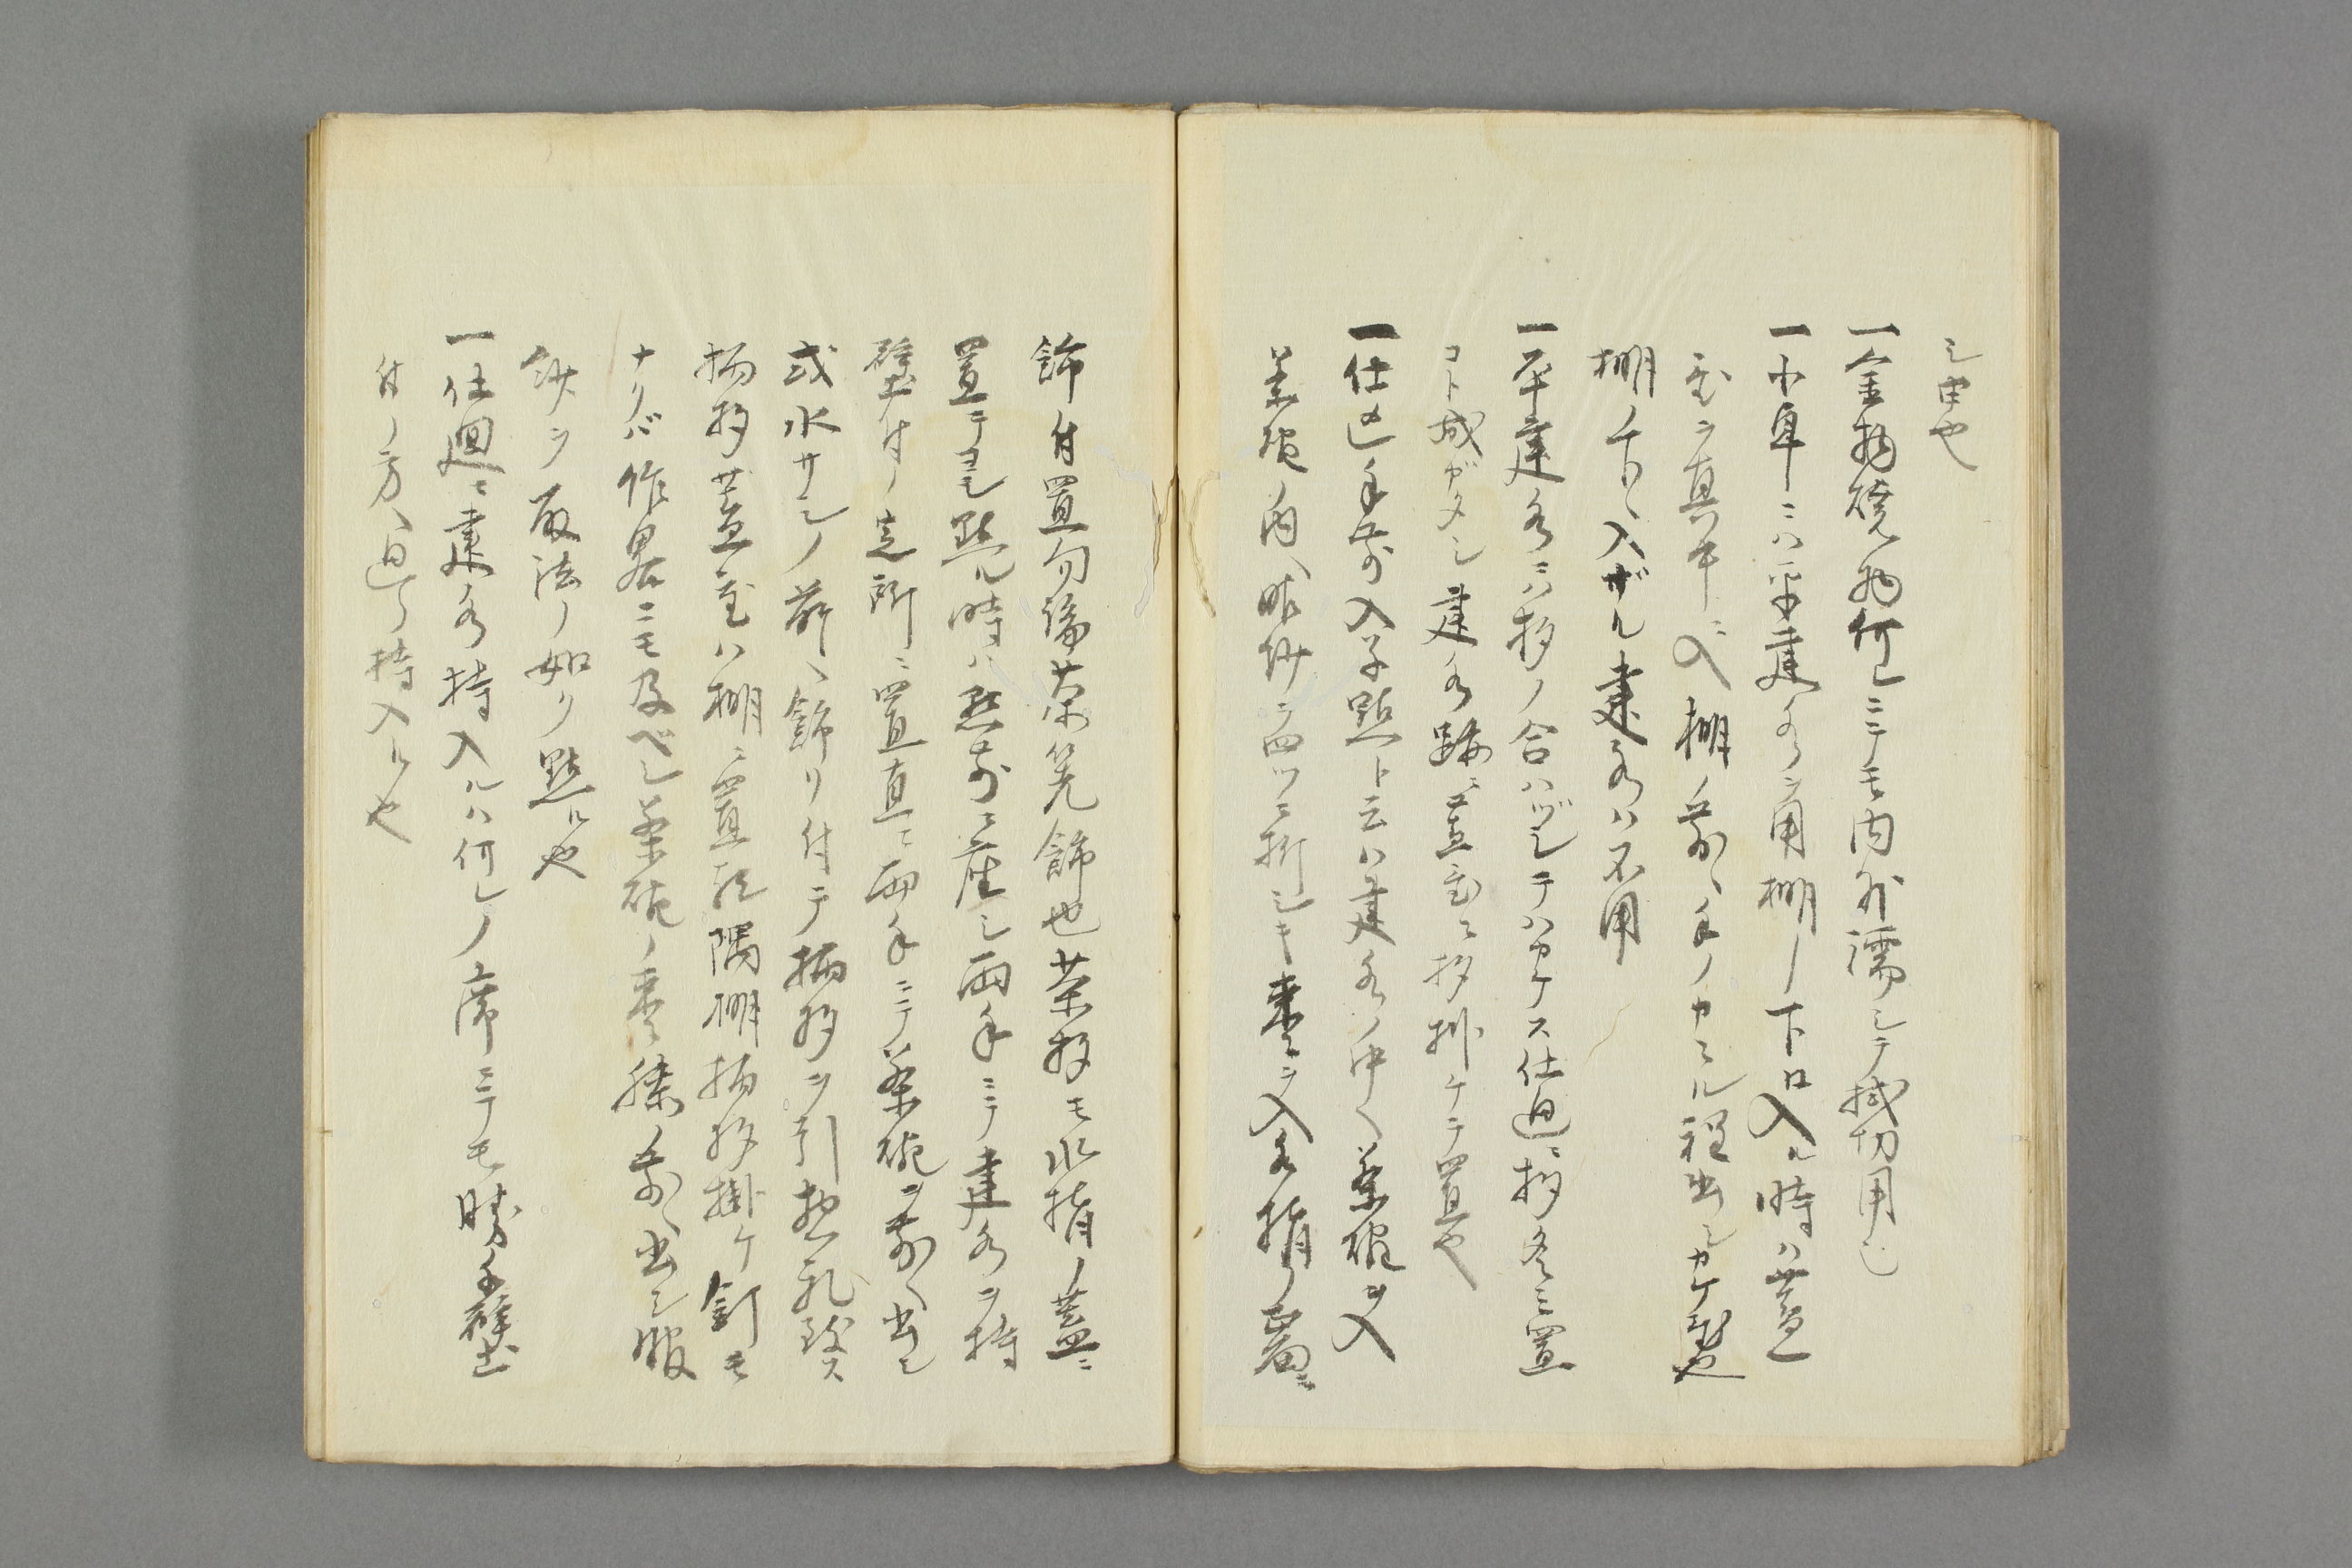 シ由也
一金物焼物何レニテモ内外濡シテ拭切用ヒ
一小卓ニハ平建水ヲ用棚ノ下ロ入ル時ハ蓋
置ヲ真中ニ入棚ノ前ヘ手ノカヽル程出シカケ置也
棚ノ下ヘ入ザル建水ハ不用
一平建水ニハ杓ノ合ハヅシテハカケス仕廻ニ杓冬ニ置
コト成ガタシ建水跡ニ蓋置ニ杓掛ケテ置也
一仕廻手前入子點ト云ハ建水ノ中ヘ茶碗ヲ入
茶碗ノ内ヘ帛紗ヲ四ツニ折シキ棗ヲ入水指ノ前ニ
飾付置勿論茶筅飾也茶杓モ水指ノ蓋ニ
置テヨシ點ル時ハ點前ニ座シ両手ニテ建水ヲ持
壁付ノ定所ニ置直ニ両手ニテ茶碗ヲ前ヘ出シ
或水サシノ前ヘ飾リ付テ柄杓ヲ引
柄杓蓋置ハ棚ニ置隅棚柄杓掛ケ釘モ
ナリバ作畧ニモ及ベシ茶碗ノ棗膝ノ前ヘ出シ服
紗ヲ取法ノ如ク點ル也
一仕廻ニ建水持入ルハ何レノ席ニテモ勝手
付ノ方ヘ廻ク持入ル也